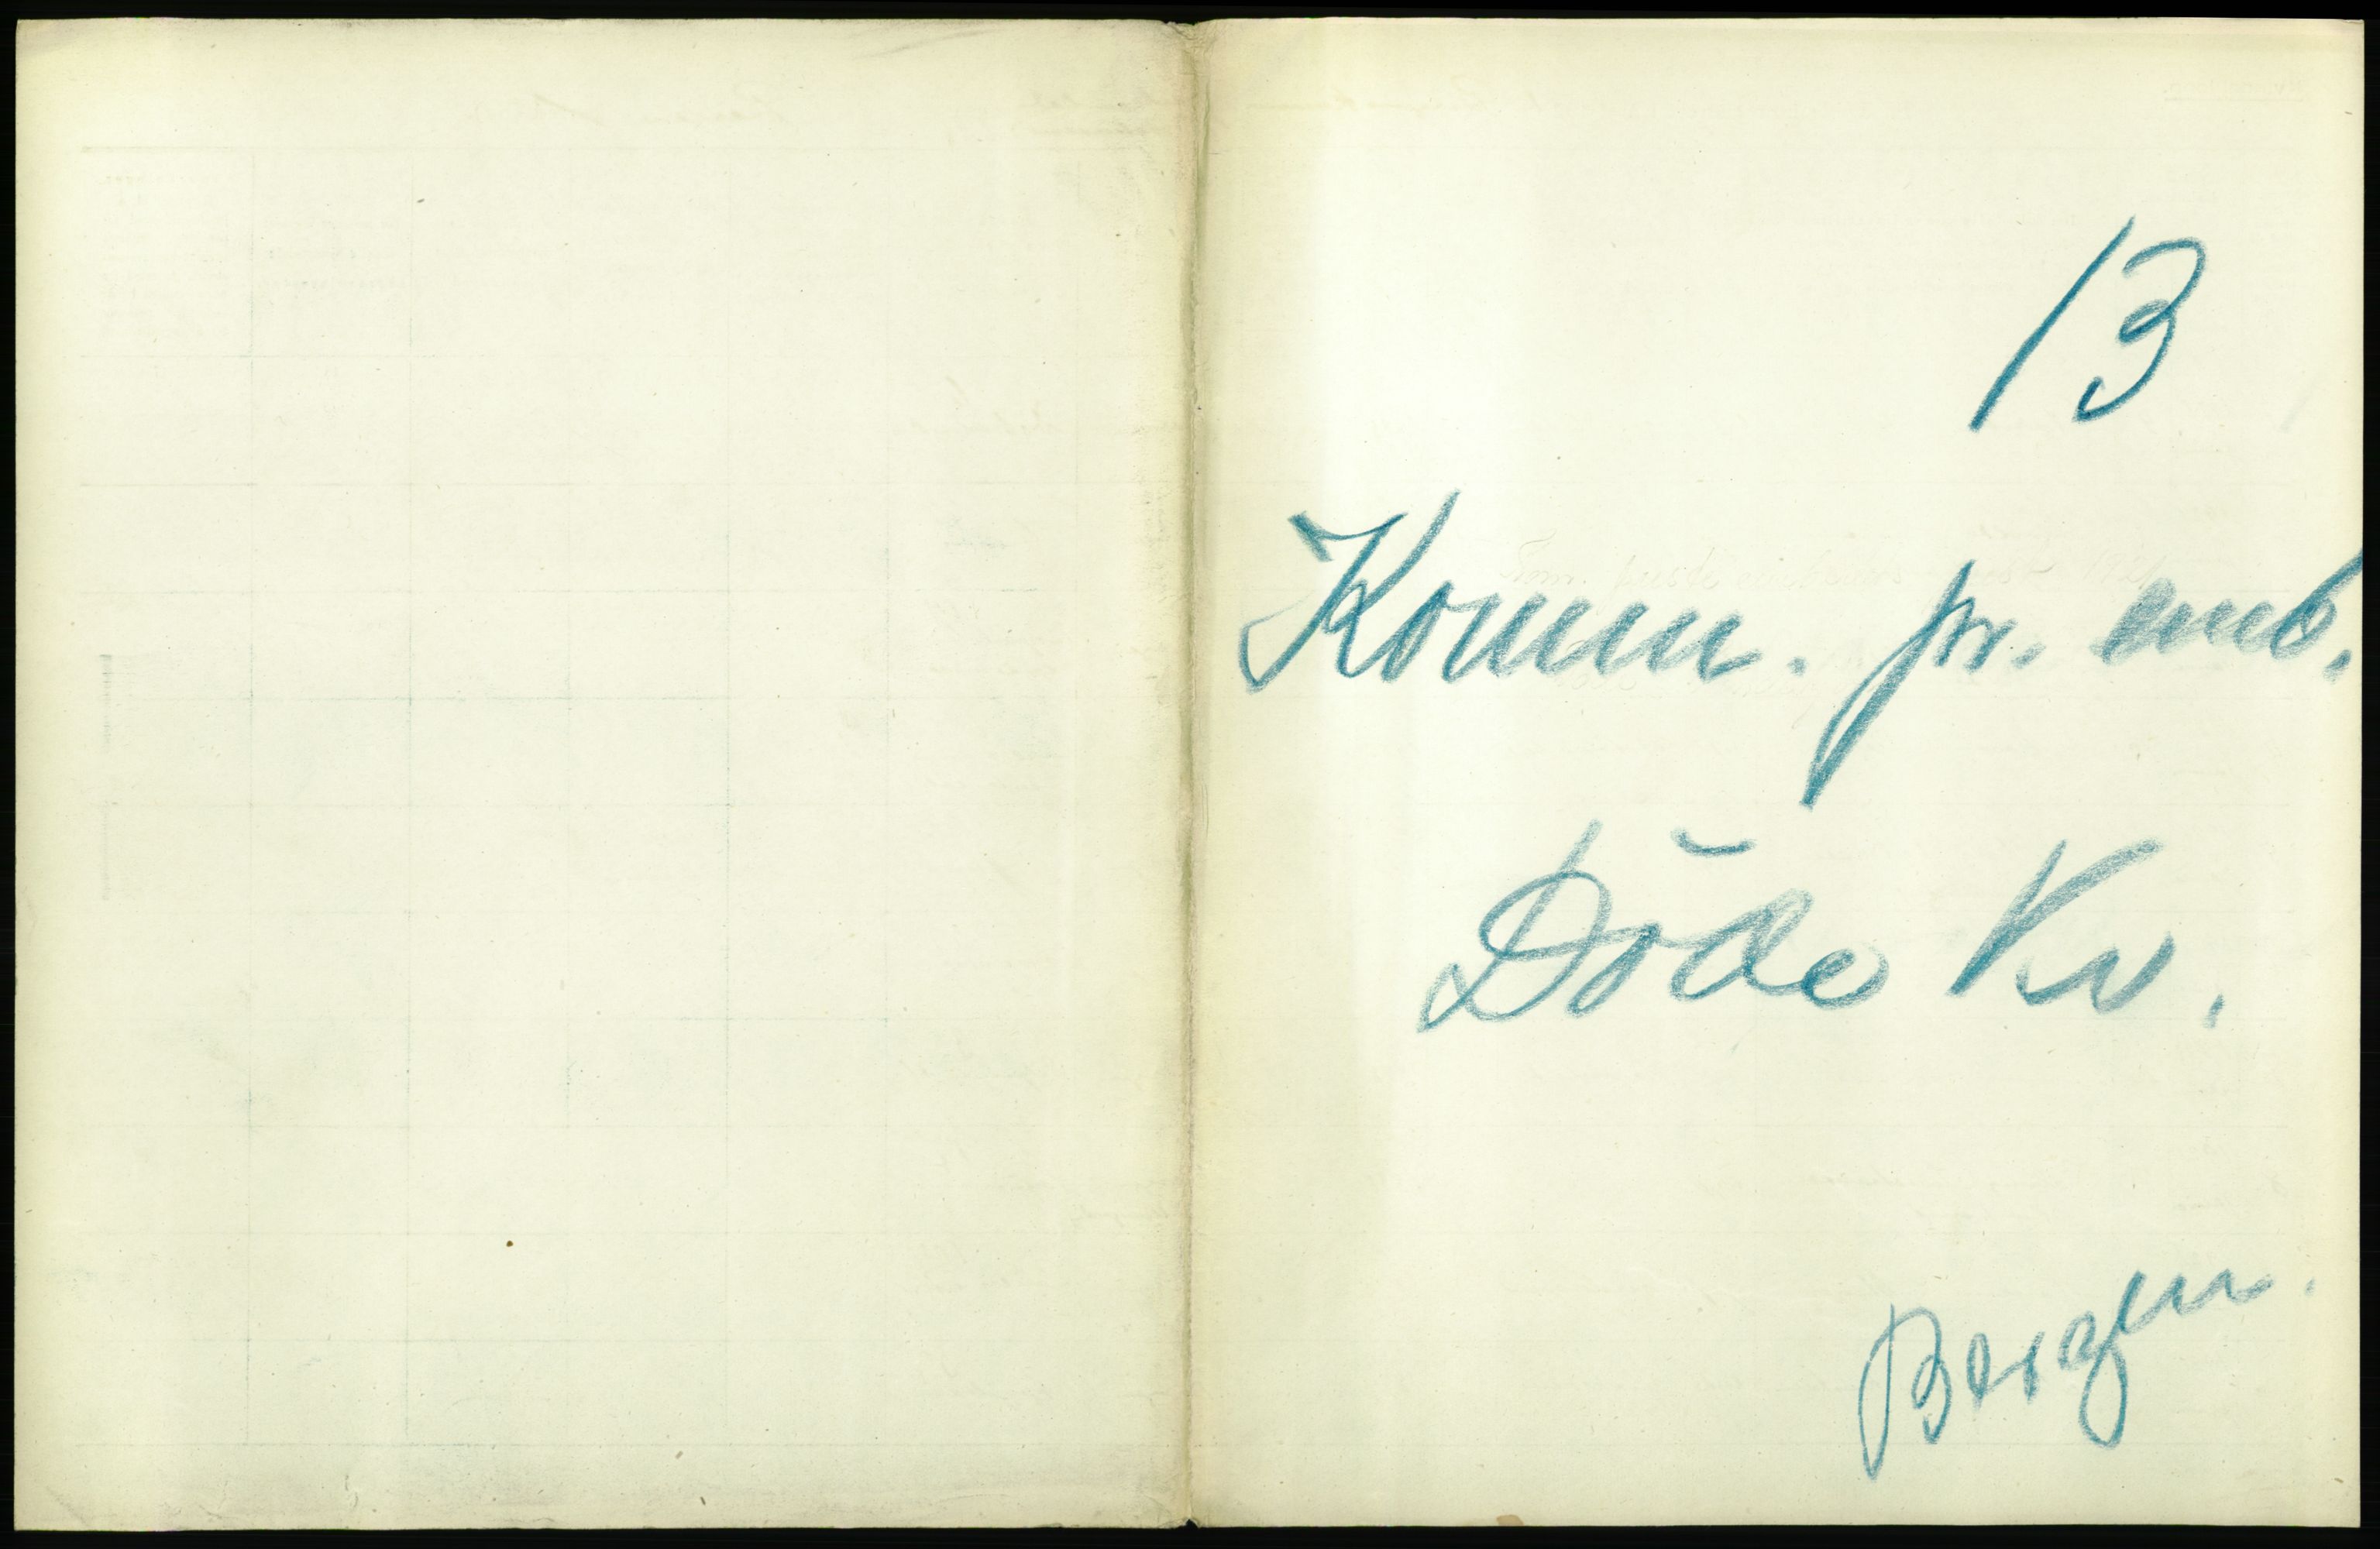 13
Komm. pr. emb.
Döde Kv.
Bergen.